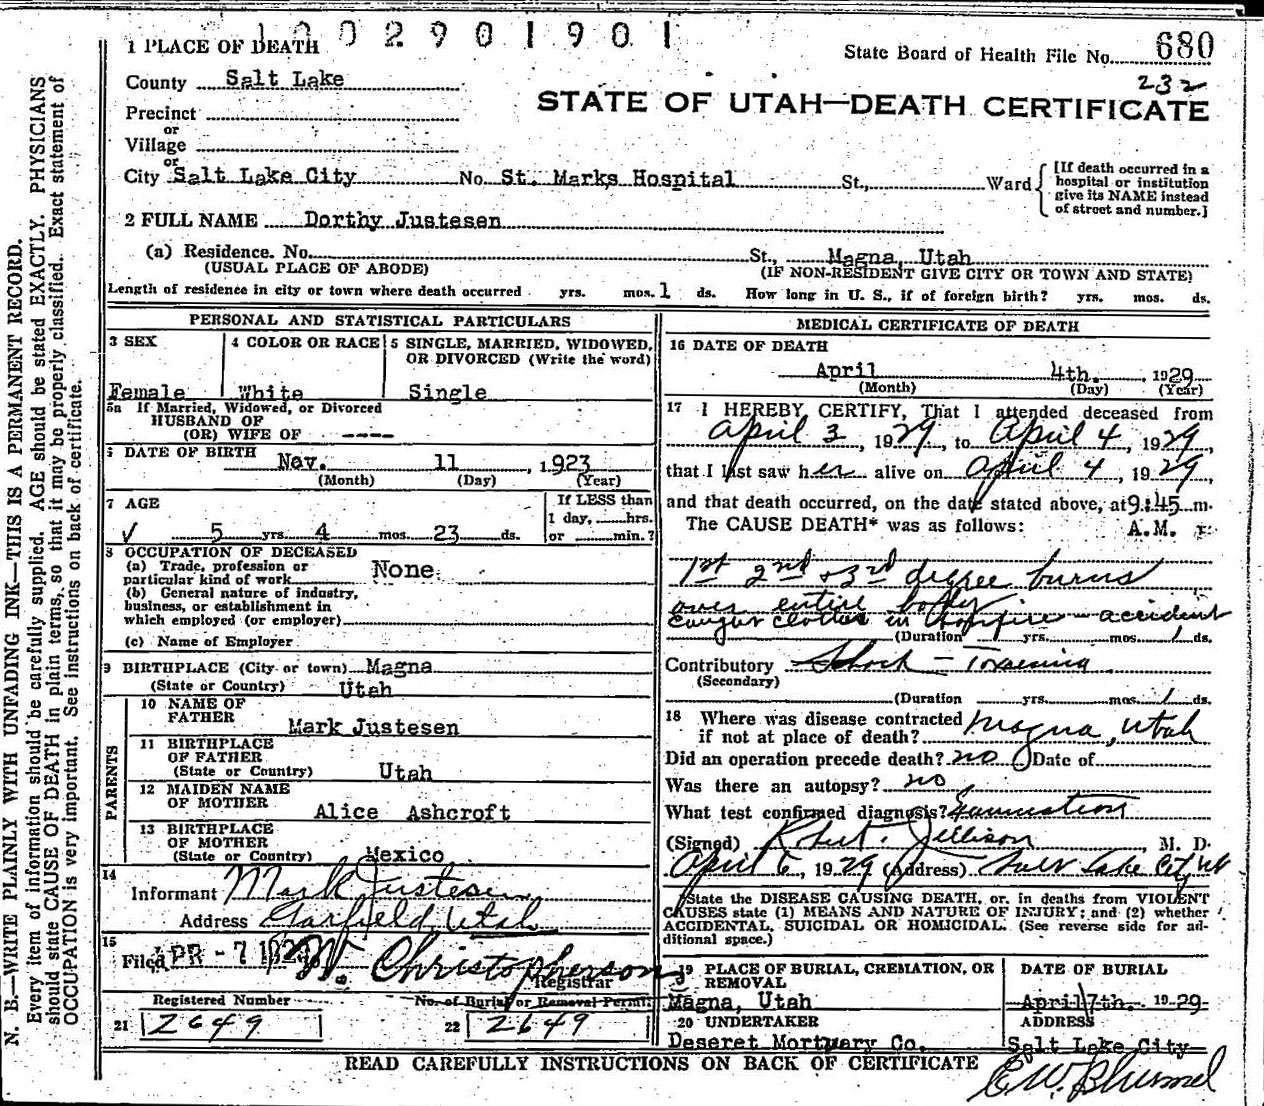 1002901901
1 PLACE OF DEATH
State Board of Health File No. 680
County Salt Lake
232
STATE OF UTAH—DEATH CERTIFICATE
Precinct
or
Village
or
City Salt Lake City No. St. Marks Hospital St., Ward
[If death occurred in a
hospital or institution
give its NAME instead
of street and number.]
2 FULL NAME Dorthy Justesen
(a) Residence. No. St., Magna, Utah
(USUAL PLACE OF ABODE) (IF NON-RESIDENT GIVE CITY OR TOWN AND STATE)
Length of residence in city or town where death occurred yrs. mos. 1 ds. How long in U. S., if of foreign birth? yrs. mos. ds.
PERSONAL AND STATISTICAL PARTICULARS
3 SEX 4 COLOR OR RACE 5 SINGLE, MARRIED, WIDOWED,
OR DIVORCED (Write the word)
Female White Single
5a If Married, Widowed, or Divorced
HUSBAND OF
(OR) WIFE OF ----
6 DATE OF BIRTH Nov. 11, 1923
(Month) (Day) (Year)
7 AGE If LESS than
1 day, hrs.
✓ 5 yrs. 4 mos. 23 ds. or min.?
8 OCCUPATION OF DECEASED
(a) Trade, profession or
particular kind of work None
(b) General nature of industry,
business, or establishment in
which employed (or employer)
(c) Name of Employer
9 BIRTHPLACE (City or town) Magna
(State or Country) Utah
PARENTS
10 NAME OF
FATHER Mark Justesen
11 BIRTHPLACE
OF FATHER
(State or Country) Utah
12 MAIDEN NAME
OF MOTHER Alice Ashcroft
13 BIRTHPLACE
OF MOTHER
(State or Country) Mexico
14
Informant Mark Justesen
Address Garfield, Utah
15
Filed APR - 7 1929 W Christopherson
Registrar
Registered Number No. of Burial or Removal Permit
21 2649 22 2649
MEDICAL CERTIFICATE OF DEATH
16 DATE OF DEATH
April 4th. , 1929
(Month) (Day) (Year)
17 I HEREBY CERTIFY, That I attended deceased from
April 3, 1929, to April 4, 1929,
that I last saw her alive on April 4, 1929,
and that death occurred, on the date stated above, at 9:45 m.
The CAUSE DEATH* was as follows: A.M.
1st 2nd + 3rd degree burns
over entire body
caught clothes in bonfire - accident
(Duration yrs. mos. 1 ds.
Contributory Shock -
(Secondary)
(Duration yrs. mos. 1 ds.
18 Where was disease contracted
if not at place of death? Magna, Utah
Did an operation precede death? no Date of
Was there an autopsy? no
What test confirmed diagnosis?
(Signed) Robert Jellison, M. D.
April 6, 1929 (Address) Salt Lake City, Ut
*State the DISEASE CAUSING DEATH, or, in deaths from VIOLENT
CAUSES state (1) MEANS AND NATURE OF INJURY; and (2) whether
ACCIDENTAL, SUICIDAL OR HOMICIDAL. (See reverse side for ad-
ditional space.)
19 PLACE OF BURIAL, CREMATION, OR
REMOVAL
DATE OF BURIAL
Magna, Utah April 7th. 1929
20 UNDERTAKER ADDRESS
Deseret Mortuary Co. Salt Lake City
READ CAREFULLY INSTRUCTIONS ON BACK OF CERTIFICATE
N. B.—WRITE PLAINLY WITH UNFADING INK—THIS IS A PERMANENT RECORD.
Every item of information should be carefully supplied. AGE should be stated EXACTLY. PHYSICIANS
should state CAUSE OF DEATH in plain terms, so that it may be properly classified. Exact statement of
OCCUPATION is very important. See instructions on back of certificate.